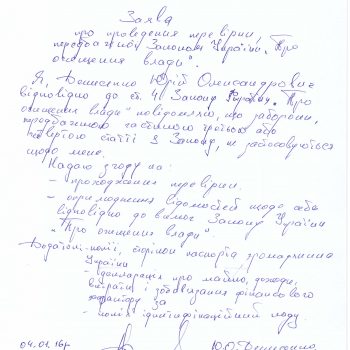 Заява
про проведення перевірки,
передбаченої Законом України "Про
очищення влади".
Я, Денисенко Юрій Олександрович
відповідно до ст. 4 Закону України "Про
очищення влади" повідомляю, що заборони,
передбачені частиною третьою або
четвертою статті 1 Закону, не застосовуються
щодо мене.
Надаю згоду на:
- проходження перевірки
- оприлюднення відомостей щодо себе
відповідно до вимог Закону України
"Про очищення влади"
Додатки: копії, сторінок паспорта громадянина
України
- декларація про майно, доходи,
витрати і зобов'язання фінансового
характеру за
- копія ідентифікаційний коду.
04.01.16р Ю.О. Денисенко